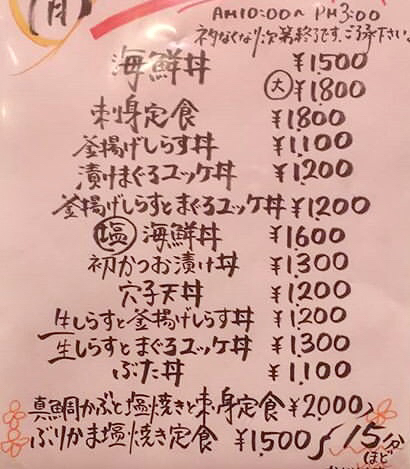 (月)
AM10:00〜PM3:00
ネタなくなり次第終了です。ご了承下さい。
海鮮丼 ¥1500
大 ¥1800
刺身定食 ¥1800
釜揚げしらす丼 ¥1,100
漬けまぐろユッケ丼 ¥1,200
釜揚げしらすとまぐろユッケ丼 ¥1200
塩 海鮮丼 ¥1600
初かつお漬け丼 ¥1,300
穴子天丼 ¥1,200
生しらすと釜揚げしらす丼 ¥1,200
生しらすとまぐろユッケ丼 ¥1,300
ぶた丼 ¥1,100
真鯛かぶと塩焼きと刺身定食 ¥2000
ぶりかま塩焼き定食 ¥1500
15分
ほど